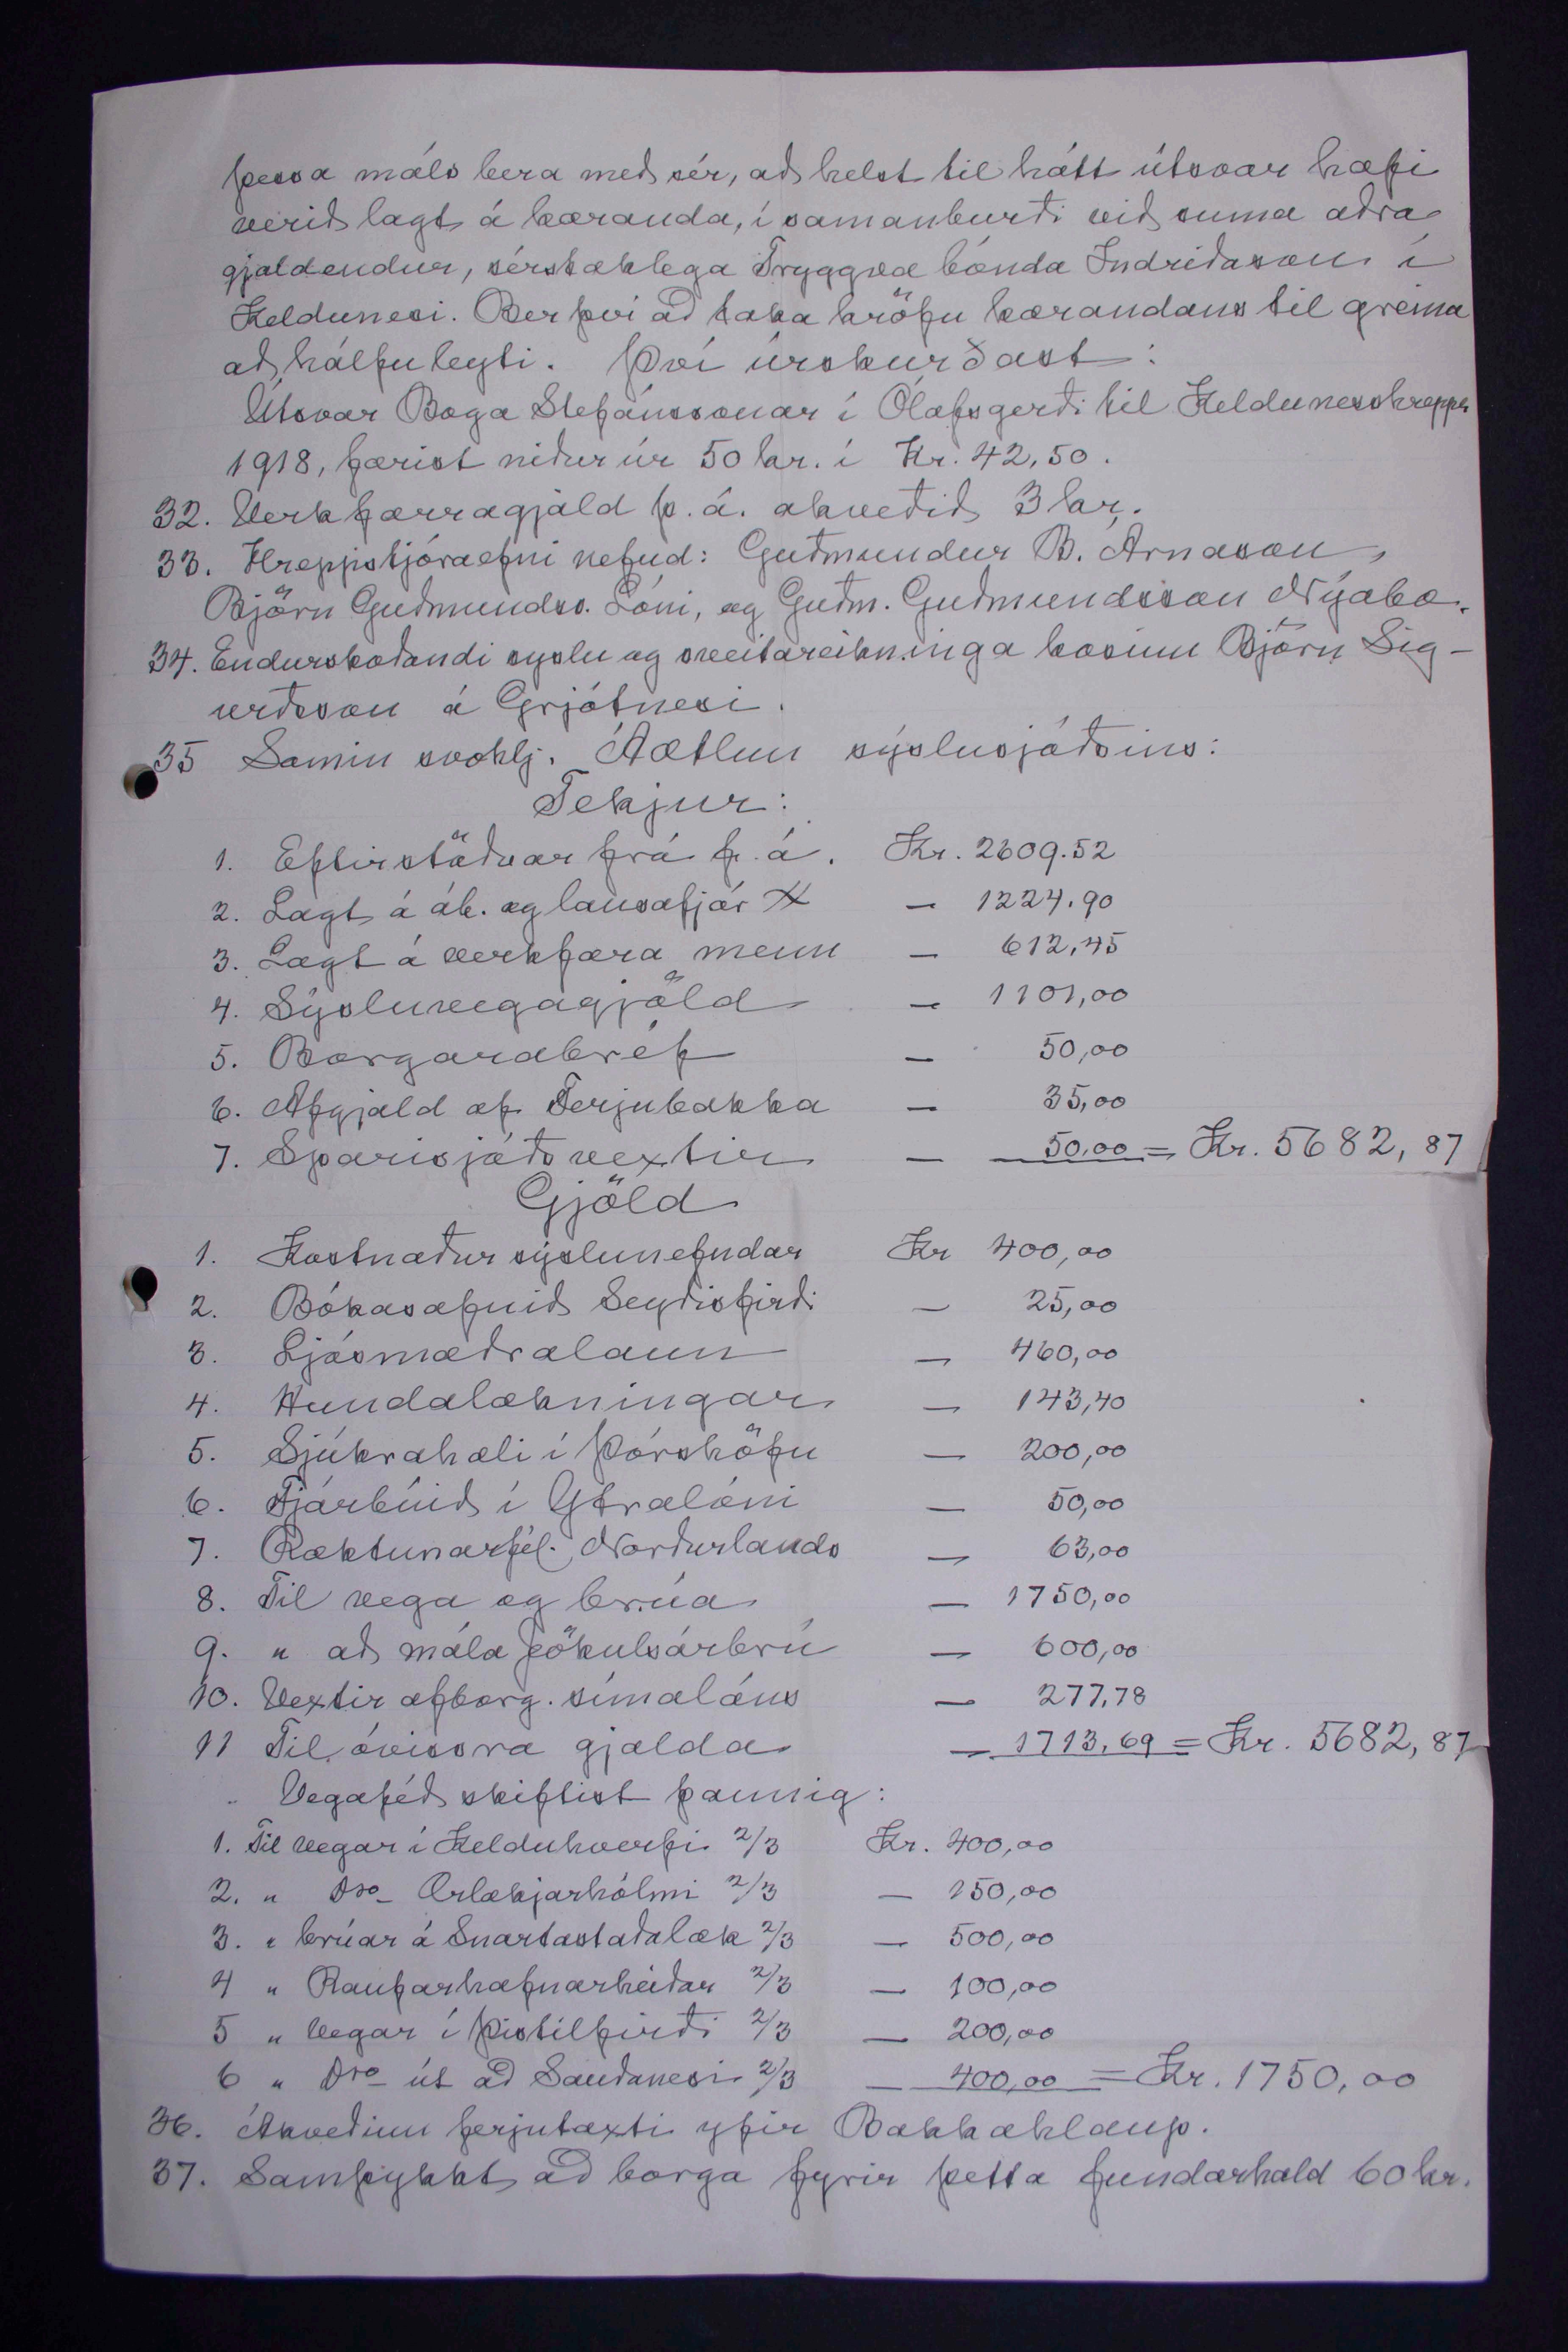 þessa máls bera með sér, að helst til hátt útsvar hafi
verið lagt á kæranda, í samanburði við suma aðra
gjaldendur, sérstaklega Tryggva bónda Indriðason í
Keldunesi. Ber því að taka kröfu kærandans til greina
að hálfu leyti. Því úrskurðast:
Útsvar Boga Stefánssonar í Ólafsgerði til Kelduneshrepps
1918, færist niður úr 50 kr. í Kr. 42,50.
32. Verkfærragjald þ.á. ákveðið 3 kr.
33. Hreppstjóraefni nefnd: Guðmundur B. Árnason,
Björn Guðmundss. Lóni, og Guðm. Guðmundsson Nýabæ.
34. Endurskoðandi syslu og sveitareikninga kosinn Björn Sig-
urðsson á Grjótnesi.
35 Samin svohlj. Áætlun sýslusjóðsins:
Tekjur:
1. Eftirstöðvar frá f. á. Kr. 2609.52
2. Lagt á áb. og lausafjár X — 1224.90
3. Lagt á verkfæra menn — 612,45
4. Sýsluvegagjöld — 1101,00
5. Borgarabréf — 50,00
6. Afgjald af Ferjubakka — 35,00
7. Sparisjóðsvextir — 50,00 = Kr. 5682,87
Gjöld
1. Kostnaður sýslunefndar Kr 400,00
2. Bókasafnið Seyðisfirði — 25,00
3. Ljósmæðralaun — 460,00
4. Hundalækningar — 143,40
5. Sjúkrahæli í Þórshöfn — 200,00
6. Fjárbúið í Ytralóni — 50,00
7. Ræktunarfél. Norðurlands — 63,00
8. Til vega og brúa — 1750,00
9. " að mála Jökulsárbrú — 600,00
10. Vextir afborg. símaláns — 277,78
11 Til óvissra gjalda — 1713,69 = Kr. 5682,87
Vegaféð skiftist þannig:
1. Til vegar í Kelduhverfi 2/3 Kr. 400,00
2. " Dso- Ærlækjarhólmi 2/3 — 150,00
3. " brúar á Snartastaðalæk 2/3 — 500,00
4 " Raufarhafnarheiðar 2/3 — 100,00
5 " vegar í Þistilfirði 2/3 — 200,00
6 " Dso- út að Sauðanesi 2/3 — 400,00 = Kr. 1750,00
36. Ákveðinn ferjutaxti yfir Bakkahlaup.
37. Samþykkt að borga fyrir þetta fundarhald 60 kr.